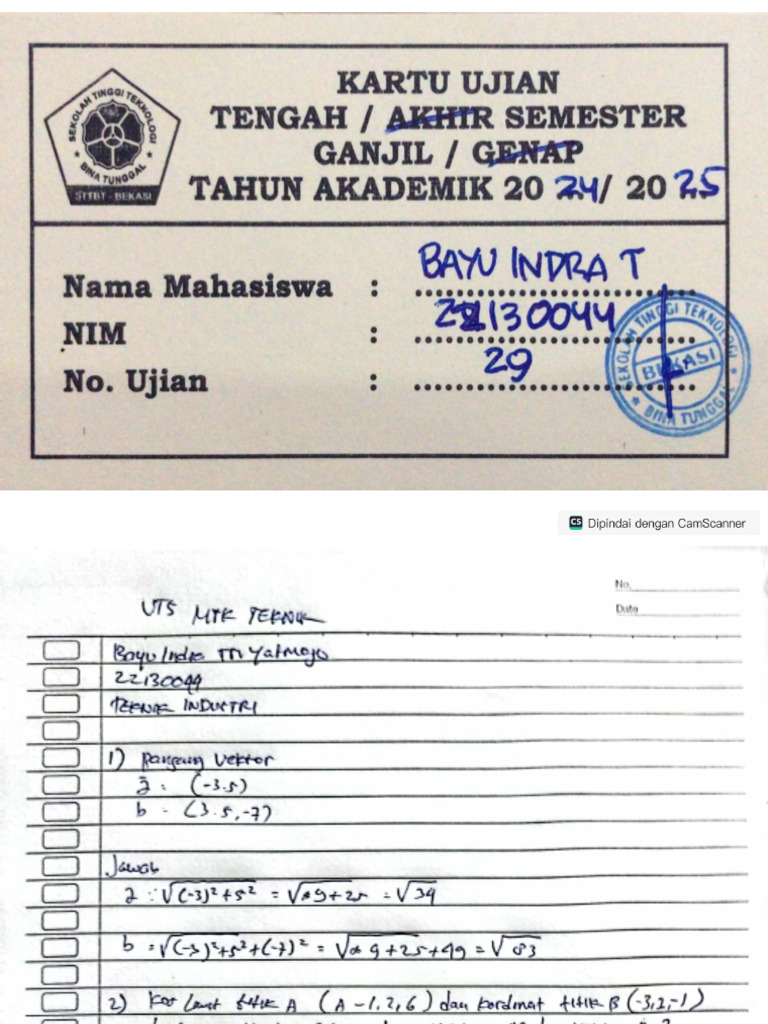 SEKOLAH TINGGI TEKNOLOGI
BINA TUNGGAL
STTBT - BEKASI
KARTU UJIAN
TENGAH / AKHIR SEMESTER
GANJIL / GENAP
TAHUN AKADEMIK 20 24/ 20 25
Nama Mahasiswa : BAYU INDRA T
NIM : 22130044
No. Ujian : 29
SEKOLAH TINGGI TEKNOLOGI
BEKASI
BINA TUNGGAL
CS Dipindai dengan CamScanner
No.
Date
UTS MTK TEKNIK
Bayu Indra Triyatmojo
22130044
TEKNIK INDUSTRI
1) Panjang Vektor
a̅ : (-3.5)
b = (3.5,-7)
Jawab
a : √(-3)²+5² = √9+25 = √34
b = √(-3)²+5²+(-7)² = √9+25+49 = √83
2) titik A (A-1,2,6) dan kordinat titik B (-3,2,-1)